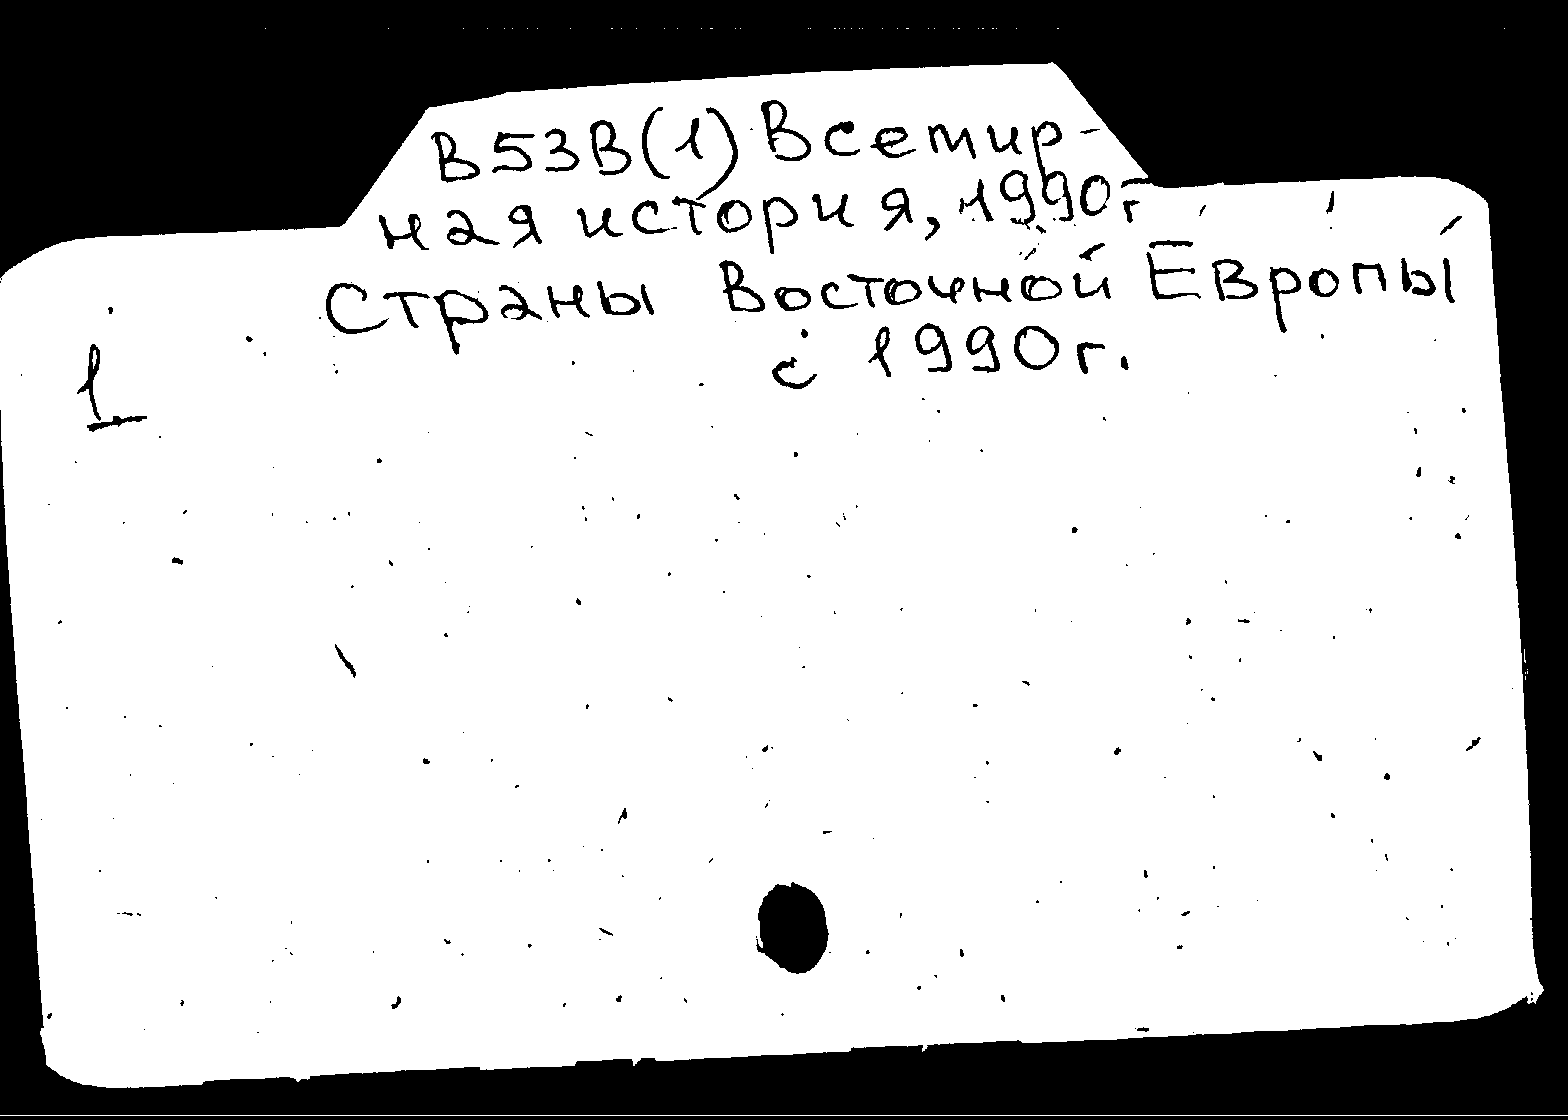 В53В(1) Всемир-
ная история, 1990г
Страны Восточной Европы
с 1990г.
1